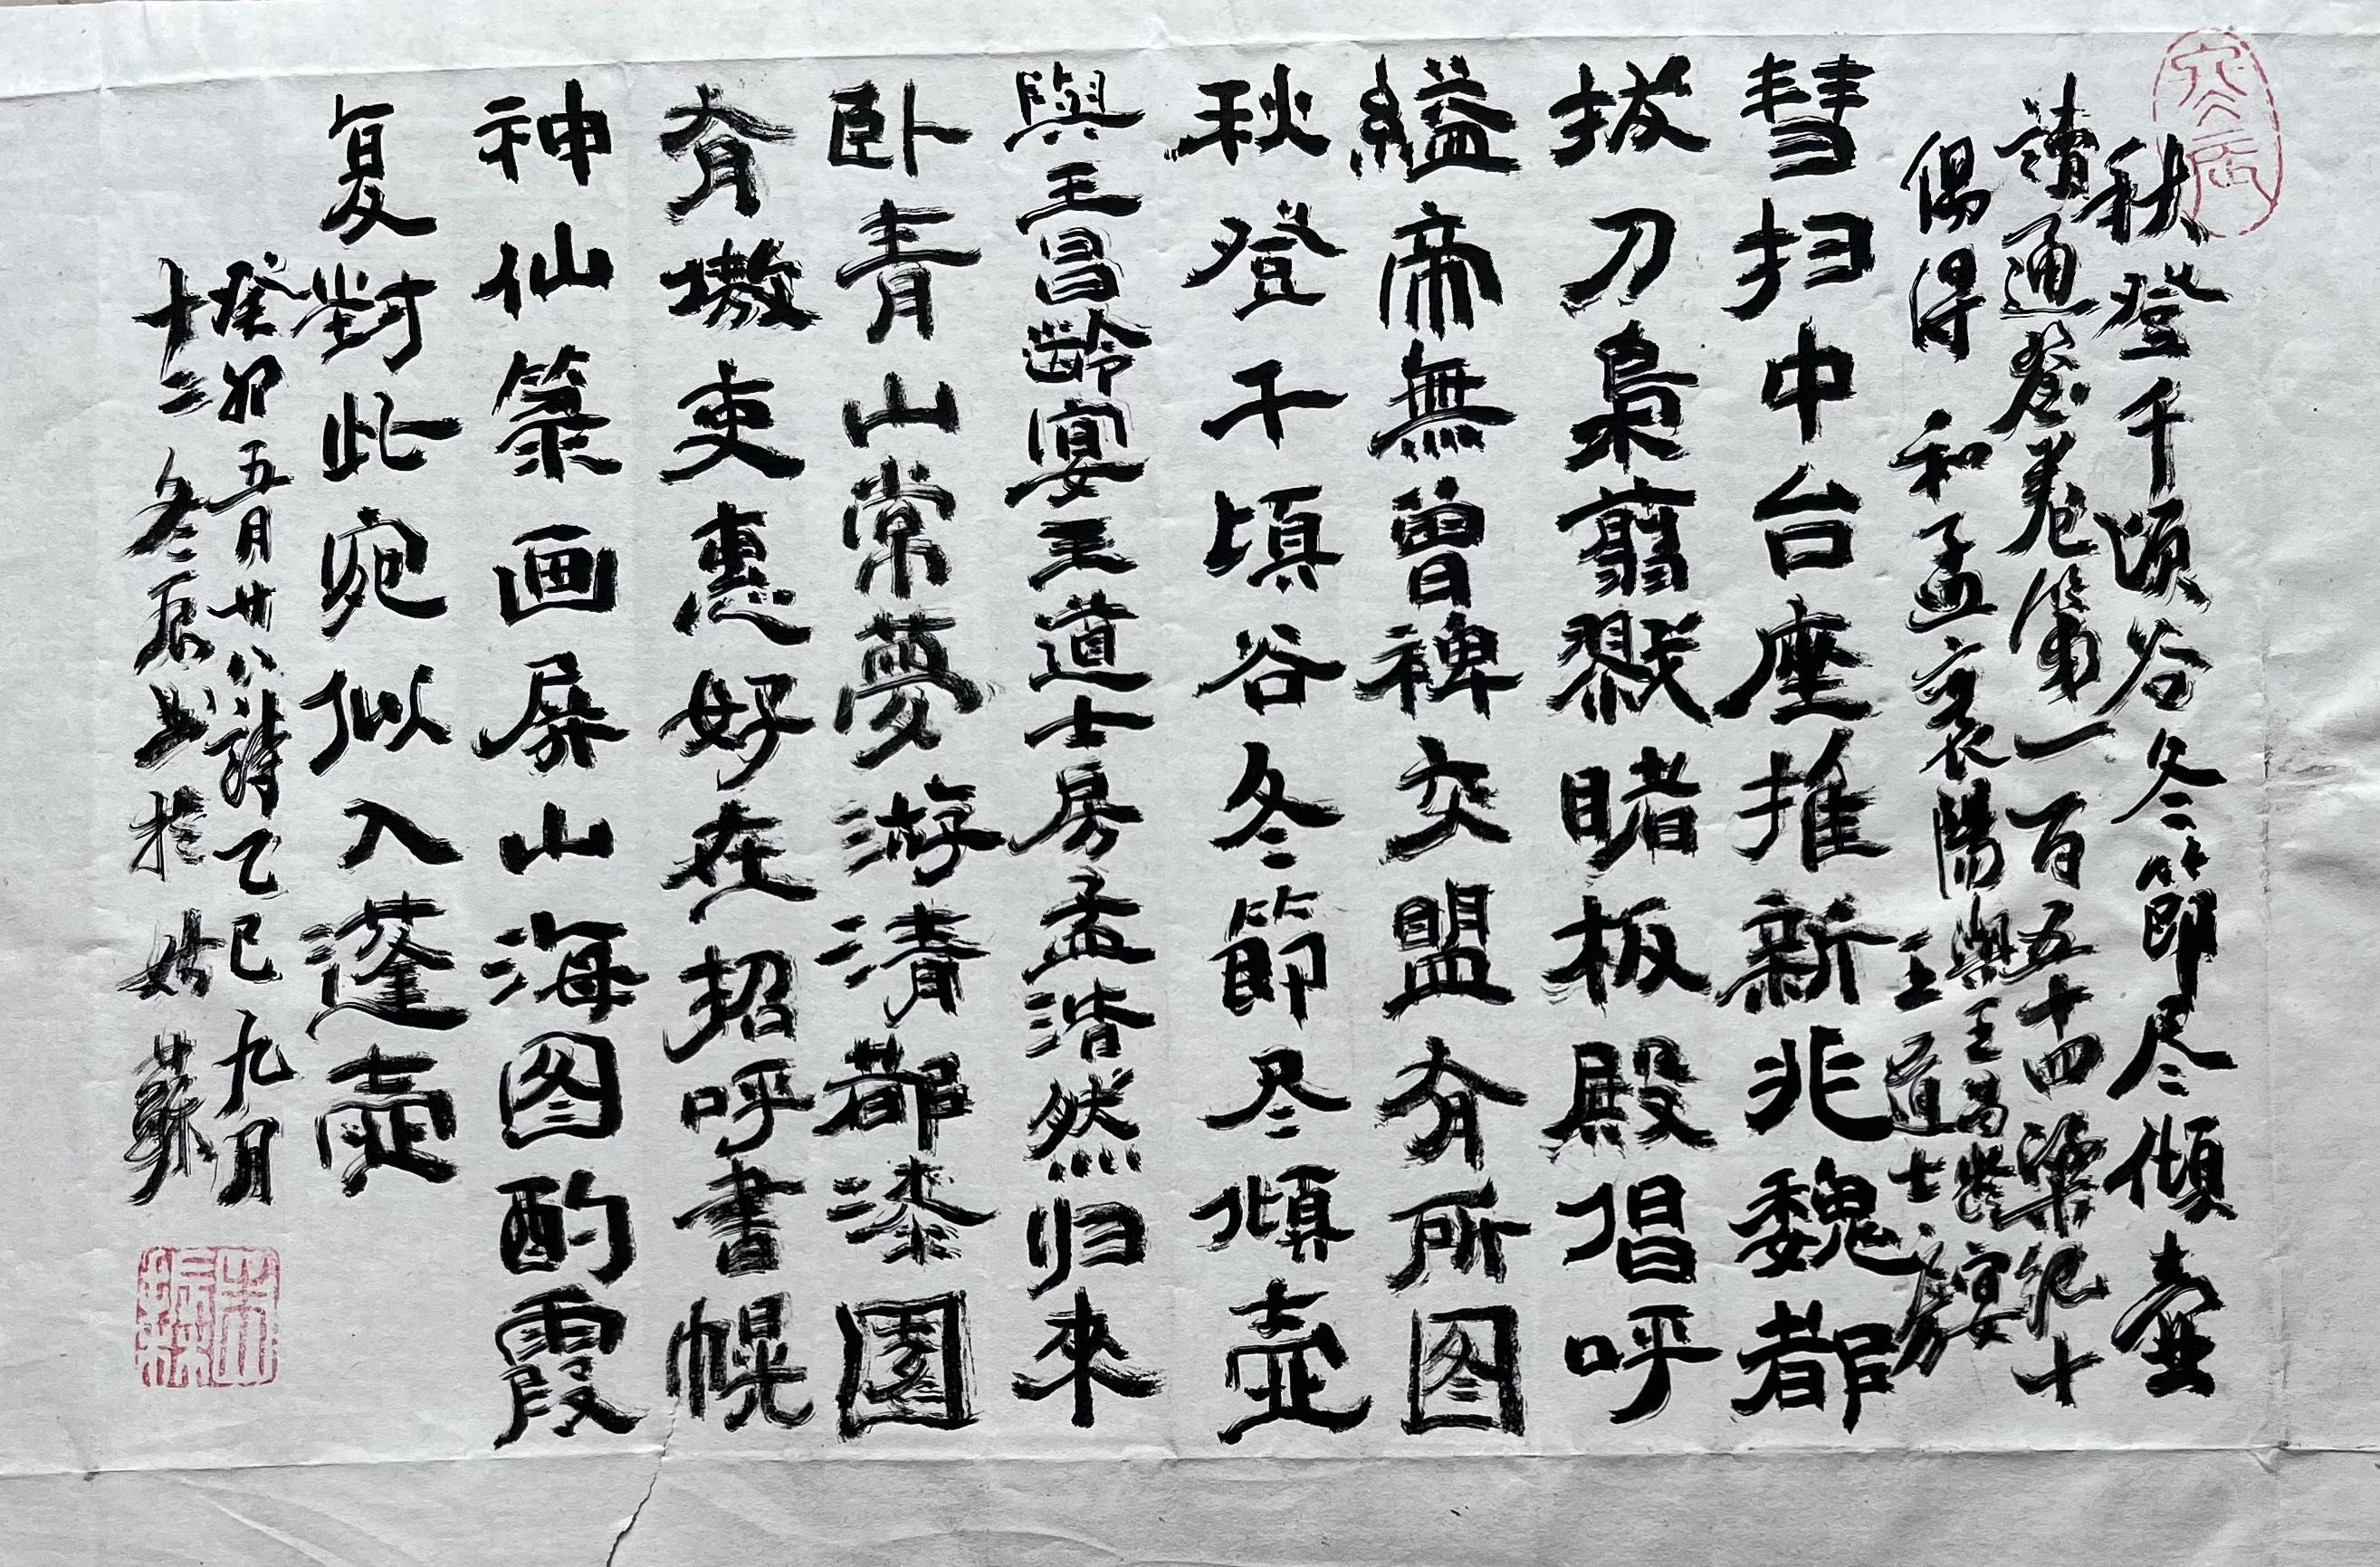 秋登千頃谷冬節尽傾壺
讀通鑒卷第一百五十四梁紀十
偶得 和孟襄陽與王昌齡宴
王道士房
彗扫中台座推新兆魏都
拔刀梟翦戮睹板殿倡呼
縊帝無曾裨交盟有所图
秋登千頃谷冬節尽傾壺
與王昌齡宴王道士房孟浩然归來
卧青山常夢游清都漆園
有墩吏惠好在招呼書幌
神仙箓画屏山海图酌霞
复對此宛似入蓬壺
癸卯五月廿八詩乙巳九月
十二冬辰书於姑蘇